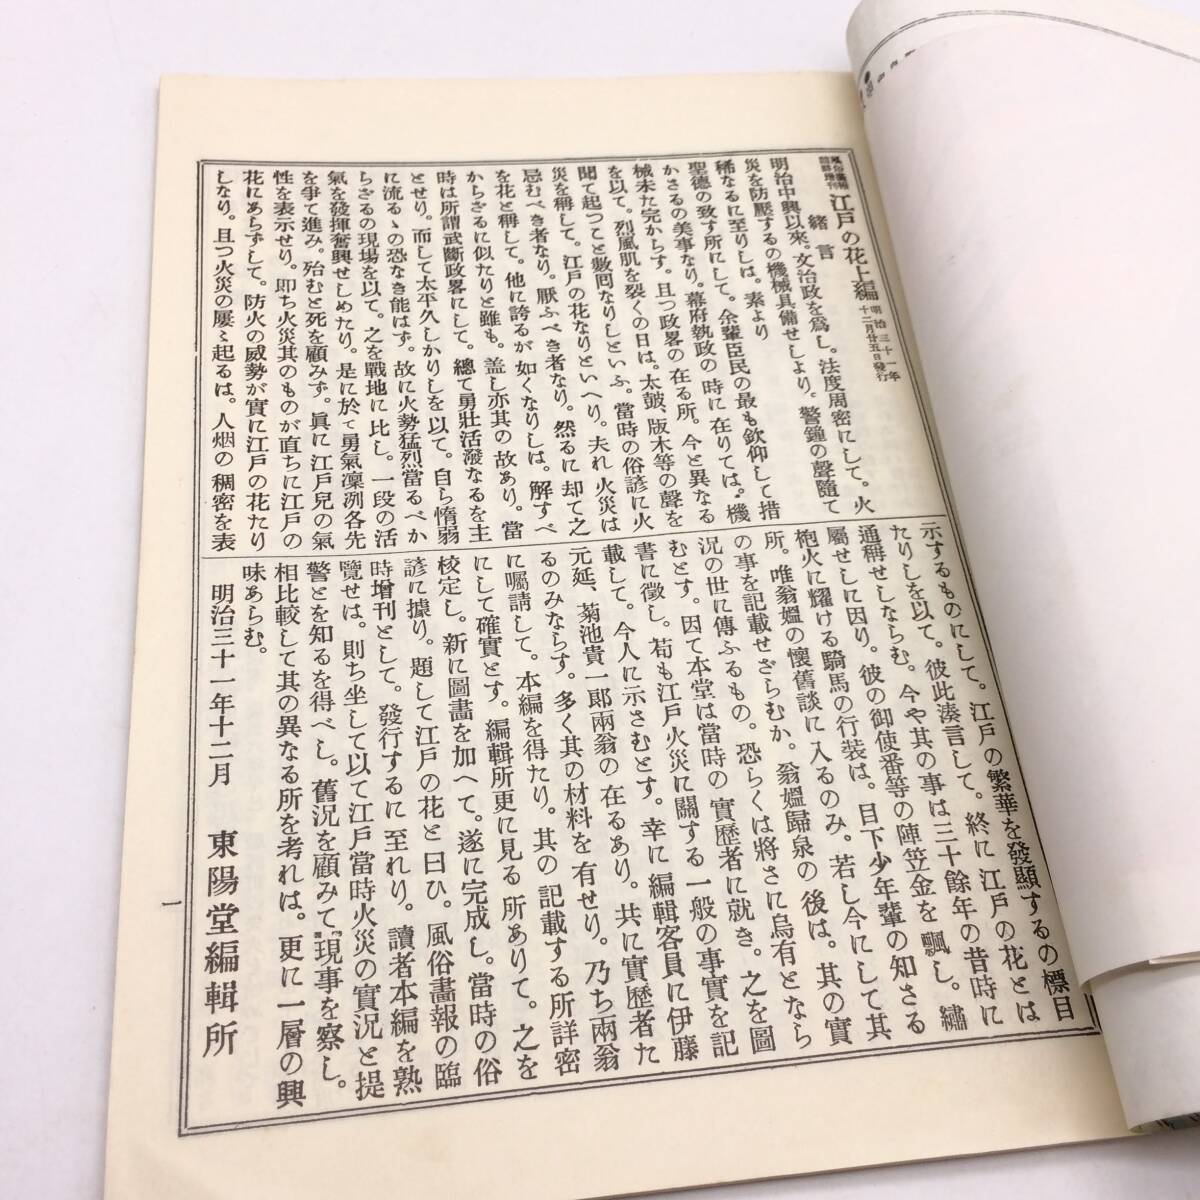 風俗畫報
臨時增刊
江戸の花上編
明治三十一年
十二月廿五日發行
緒言
明治中興以來。文治政を爲し。法度周密にして。火
災を防壓するの機械具備せしより。警鐘の聲隨て
稀なるに至りしは。素より
聖德の致す所にして。余輩臣民の最も欽仰して措
かさるの美事なり。幕府執政の時に在りては。機
械未た完からす。且つ政畧の在る所。今と異なる
を以て。烈風肌を裂くの日は。太鼓、版木等の聲を
聞て起つこと數囘なりしといふ。當時の俗諺に火
災を稱して。江戸の花なりといへり。夫れ火災は
忌むべき者なり。厭ふべき者なり。然るに却て之
を花と稱して。他に誇るが如くなりしは。解すべ
からざるに似たりと雖も。盖し亦其の故あり。當
時は所謂武斷政畧にして。總て勇壯活潑なるを主
とせり。而して太平久しかりしを以て。自ら惰弱
に流るゝの恐なき能はず。故に火勢猛烈當るべか
らざるの現場を以て。之を戰地に比し。一段の活
氣を發揮奮興せしめたり。是に於て勇氣凜冽各先
を爭て進み。殆むと死を顧みず。眞に江戸兒の氣
性を表示せり。即ち火災其のものが直ちに江戸の
花にあらずして。防火の威勢が實に江戸の花たり
しなり。且つ火災の屢〻起るは。人烟の稠密を表
示するものにして。江戸の繁華を發顯するの標目
たりしを以て。彼此湊言して。終に江戸の花とは
通稱せしならむ。今や其の事は三十餘年の昔時に
屬せしに因り。彼の御使番等の陣笠金を飄し。繡
袍火に耀ける騎馬の行装は。目下少年輩の知さる
所。唯翁媼の懷舊談に入るのみ。若し今にして其
の事を記載せざらむか。翁媼歸泉の後は。其の實
況の世に傳ふるもの。恐らくは將さに烏有となら
むとす。因て本堂は當時の實歷者に就き。之を圖
書に徵し。苟も江戸火災に關する一般の事實を記
載して。今人に示さむとす。幸に編輯客員に伊藤
元延、菊池貴一郎兩翁の在るあり。共に實歷者た
るのみならす。多く其の材料を有せり。乃ち兩翁
に囑請して。本編を得たり。其の記載する所詳密
にして確實とす。編輯所更に見る所ありて。之を
校定し。新に圖畫を加へて。遂に完成し。當時の俗
諺に據り。題して江戸の花と曰ひ。風俗畫報の臨
時增刊として。發行するに至れり。讀者本編を熟
覽せは。則ち坐して以て江戸當時火災の實況と提
警とを知るを得べし。舊況を顧みて現事を察し。
相比較して其の異なる所を考れは。更に一層の興
味あらむ。
明治三十一年十二月　東陽堂編輯所
一